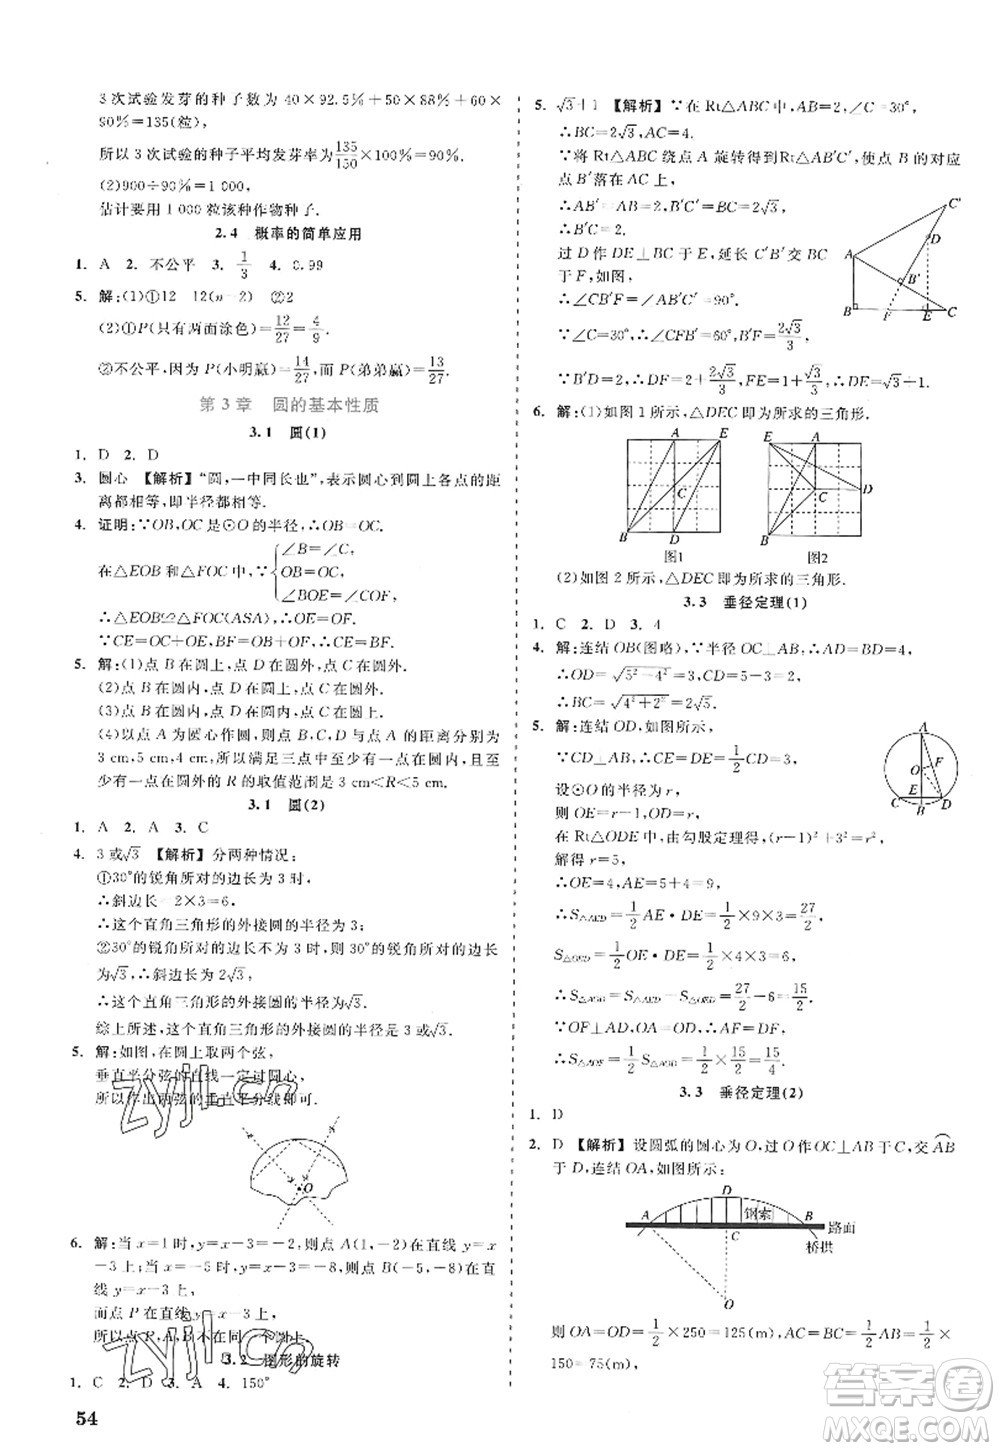 3 次试验发芽的种子数为 40×92.5%+50×88%+60×
90%=135(粒),
所以 3 次试验的种子平均发芽率为135/150×100%=90%.
(2)900÷90%=1 000,
估计要用 1 000 粒该种作物种子.
2.4 概率的简单应用
1. A 2. 不公平 3. 1/3 4. 0.99
5. 解:(1)①12 12(n-2) ②2
(2)①P(只有两面涂色)=12/27=4/9.
②不公平,P(小明赢)=14/27,而 P(弟弟赢)=13/27.
第 3 章 圆的基本性质
3.1 圆(1)
1. D 2. D
3. 圆心 【解析】“圆,一中同长也”,表示圆心到圆上各点的距
离都相等,即半径都相等.
4. 证明:∵OB,OC 是⊙O 的半径,∴OB=OC.
在△EOB 和△FOC 中,∵{∠B=∠C, OB=OC, ∠BOE=∠COF,
∴△EOB≌△FOC(ASA),∴OE=OF.
∵CE=OC+OE,BF=OB+OF,∴CE=BF.
5. 解:(1)点 B 在圆上,点 D 在圆外,点 C 在圆外.
(2)点 B 在圆内,点 D 在圆外,点 C 在圆外.
(3)点 B 在圆内,点 D 在圆上,点 C 在圆外.
(4)以点 A 为圆心作圆,点 B,C,D 与点 A 的距离分别为
3 cm,5 cm,4 cm,所以满足三点中至少有一点在圆内,且至
少有一点在圆外的 R 的取值范围是 3 cm<R<5 cm.
3.1 圆(2)
1. A 2. A 3. C
4. 3 或√3 【解析】分两种情况:
①30°的锐角所对的边长为 3 时,
∴斜边长=2×3=6,
∴这个直角三角形的外接圆的半径为 3;
②30°的锐角所对的边长不为 3 时,则 30°所对的边长
为√3,∴斜边长为 2√3,
∴这个直角三角形的外接圆的半径为√3.
综上所述,这个直角三角形的外接圆的半径为 3 或√3.
5. 解:如图,在圆上取两个弦,
垂直平分弦的直线一定过圆心,
所以作出两弦的垂直平分线即可.
O
6. 解:当 x=1 时,y=-3+1=-2,则点 A(1,-2)在直线 y=
-3+x 上;当 x=-5 时,y=-3-5=-8,则点 B 也在直
线 y=x-3 上,
而点 P 在直线 y=x-3 上,
所以点 P,A,B 不在同一个圆上.
3.2 图形的旋转
1. C 2. D 3. A 4. 150°
54
5. √3+1 【解析】∵在 Rt△ABC 中,AB=2,∠C=30°,
∴BC=2√3,AC=4.
∵将 Rt△ABC 绕点 A 旋转得到Rt△AB′C′,使点 B 的对应
点 B′落在 AC 上,
∴AB′=AB=2,B′C′=BC=2√3,∴B′C=2.
过 D 作 DE⊥BC 于 E,延长 C′B′交
BC于 F,
∴∠CB′F=∠AB′C′=90°,
∵∠C=30°,∴∠CFB′=60°,B′F=2√3/3,
∵B′D=2,∴DF=2+2√3/3,FE=1+√3/3,DE=√3+1.
A B C B′ C′ D E F
6. 解:(1)如图 1 所示,△DCE 即为所求的三角形.
A E C B D
图1
E A C D B
图2
(2)如图 2 所示,△DEC 即为所求的三角形.
3.3 垂径定理(1)
1. C 2. D 3. 4
4. 解:连结 OB(图略),∵半径 OC⊥AB,∴AD=BD=4,
∴OD=√(5²-4²)=3,CD=5-3=2,
∴BC=√(4²+2²)=2√5.
5. 解:连结 OD,如图所示,
∵CD⊥AB,∴CE=DE=1/2CD=1/2×6=3.
设⊙O 的半径为 r,
则 OE=r-1,OD=r,
在 Rt△ODE 中,由勾股定理得,(r-1)²+3²=r²,
解得 r=5,
∴OE=4,AE=5+4=9,
∴S△AED=1/2AE·DE=1/2×9×3=27/2,
S△OED=1/2OE·DE=1/2×4×3=6,
∴S△AOD=S△AED-S△OED=27/2-6=15/2.
∵OF⊥AD,OA=OD,∴AF=DF,
∴S△AOF=1/2S△AOD=1/2×15/2=15/4.
A F O C E B D
3.3 垂径定理(2)
1. D
2. D 【解析】设圆弧的圆心为 O,过 O 作 OC⊥AB 于 C,交AB
于 D,连结 OA,如图所示:
A D B 钢索 路面 C 桥拱 O
则 OA=OD=1/2×250=125(m),AC=BC=1/2AB=1/2×
150=75(m),
zyjl.cn
答案圈
MXQE.COM